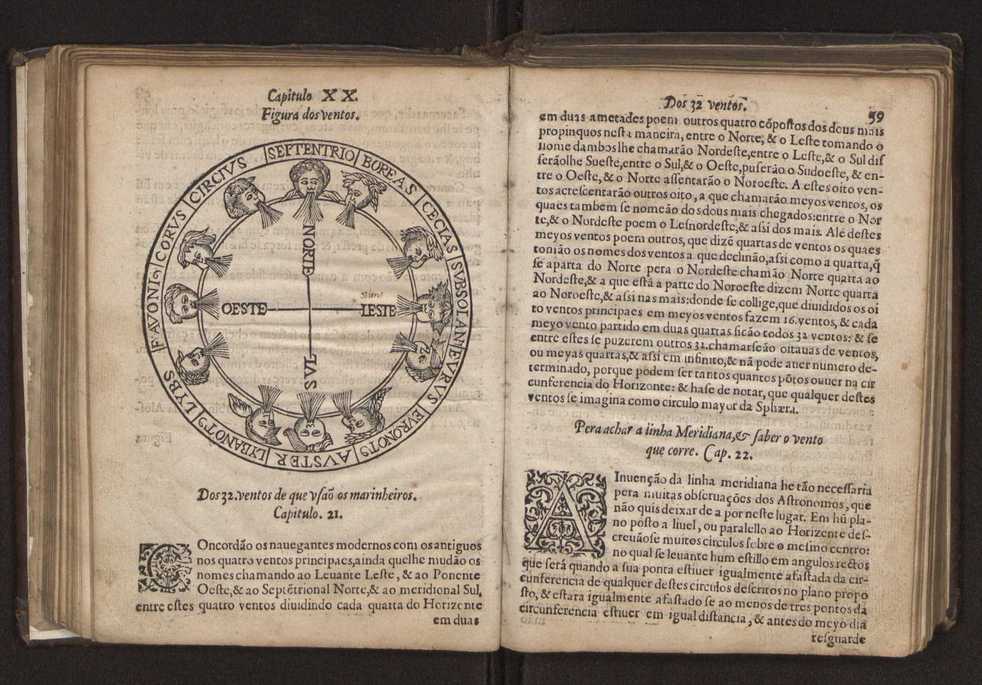 Capitulo XX.
Figura dos ventos.
SEPTENTRIO
BOREAS
CECIAS
SVBSOLAN9
EVRVS
EVRONOT9
AVSTER
LYBANOT9
LYBS
FAVONI9
CORVS
CIRCIVS
NORTE
OESTE
LESTE
SVL
Dos 32. ventos de que vsaõ os marinheiros.
Capitulo. 21.
COncordão os nauegantes modernos com os antiguos
nos quatro ventos principaes, ainda que lhe mudão os
nomes chamando ao Leuante Leste, & ao Ponente
Oeste, & ao Septẽtrional Norte, & ao meridional Sul,
entre estes quatro ventos diuidindo cada quarta do Horizonte
em duas
Dos 32 ventos.
59
em duas ametades poem outros quatro cõpostos dos dous mais
propinquos nesta maneira, entre o Norte, & o Leste tomando o
nome dambos lhe chamarão Nordeste, entre o Leste, & o Sul dis
serãolhe Sueste, entre o Sul, & o Oeste, puserão o Sudoeste, & en-
tre o Oeste, & o Norte assentarão o Noroeste. A estes oito ven-
tos acrescentarão outros oito, a que chamarão meyos ventos, os
quaes tambem se nomeão dos dous mais chegados: entre o Nor
te, & o Nordeste poem o Lesnordeste, & assi dos mais. Alẽ destes
meyos ventos poem outros, que dizẽ quartas de ventos os quaes
tomão os nomes dos ventos a que declinão, assi como a quarta, q̃
se aparta do Norte pera o Nordeste chamão Norte quarta ao
Nordeste, & a que està á parte do Noroeste dizem Norte quarta
ao Noroeste, & assi nas mais: donde se collige, que diuididos os oi
to ventos principaes em meyos ventos fazem 16. ventos, & cada
meyo vento partido em duas quartas ficão todos 32 ventos: & se
entre estes se puzerem outros 32. chamarseão oitauas de ventos,
ou meyas quartas, & assi em infinito, & nã pode auer numero de-
terminado, porque podem ser tantos quantos põtos ouuer na cir
cunferencia do Horizonte: & hase de notar, que qualquer destes
ventos se imagina como circulo mayor da Sphæra.
Pera achar a linha Meridiana, & saber o vento
que corre. Cap. 22.
A Inuenção da linha meridiana he tão necessaria
pera muitas obseruações dos Astronomos, que
não quis deixar de a por neste lugar. Em hũ pla-
no posto a liuel, ou paralello ao Horizente des-
creuãose muitos circulos sobre o mesmo centro:
no qual se leuante hum estillo em angulos rectos
que será quando a sua ponta estiuer igualmente afastada da cir-
cunferencia de qualquer destes circulos descritos no plano propo
sto, & estara igualmente afastado se ao menos de tres pontos da
circunferencia estiuer em igual distancia, & antes do meyo dia
resguarde